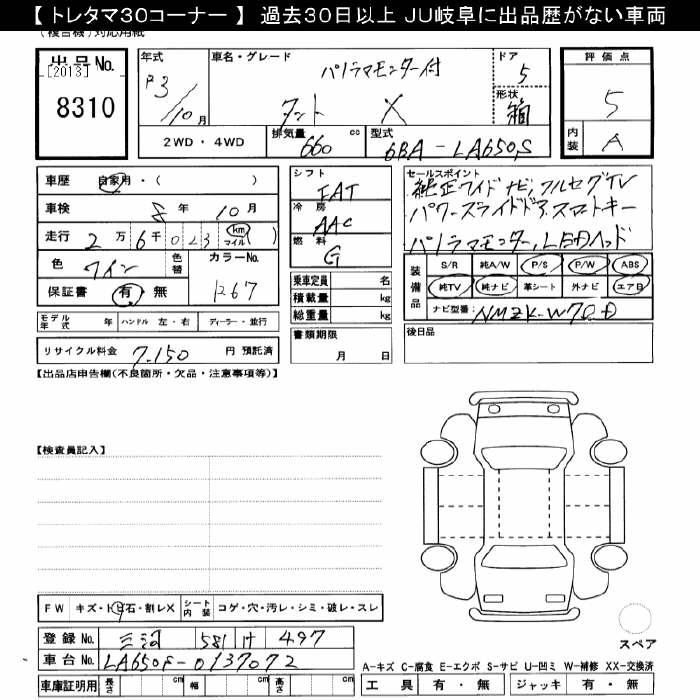 【 トレタマ30コーナー 】 過去30日以上 JU岐阜に出品歴がない車両
(複合機)対応用紙
出品No.
[2013]
8310
年式 R3/10月
車名・グレード
パノラマモニター付
タント X
ドア 5
形状 箱
評価点
5
内装 A
2WD・4WD
排気量 660 cc
型式 6BA-LA650S
車歴 自家用・( )
車検 8年 10月
走行 2万6千023 km マイル ( )
色 ワイン
色替
カラーNo. R67
保証書 有・無
シフト
IAT
冷房
AAC
燃料
G
乗車定員 名
積載量 kg
総重量 kg
書類期限
月 日
セールスポイント
純正ワイドナビ,フルセグTV
パワースライドドア,スマートキー
パノラマモニター,LEDヘッド
装備品
S/R 純A/W P/S P/W ABS
純TV 純ナビ 革シート 外ナビ エアB
ナビ型番: NMZK-W70D
後日品
モデル年式 年 ハンドル 左・右 ディーラー・並行
リサイクル料金 7,150 円 預託済
【出品店申告欄(不良箇所・欠品・注意事項等)】
【検査員記入】
FW キズ・ト日石・割レX シート内装 コゲ・穴・汚レ・シミ・破レ・スレ
登録No. 三河 581 け 497
車台No. LA650F-0137072
車庫証明用 長さ cm 幅 cm 高さ cm
スペア
A-キズ C-腐食 E-エクボ S-サビ U-凹ミ W-補修 XX-交換済
工具 有・無 ジャッキ 有・無